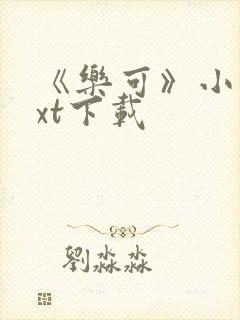 《樂可》小
xt下載
劉淼淼